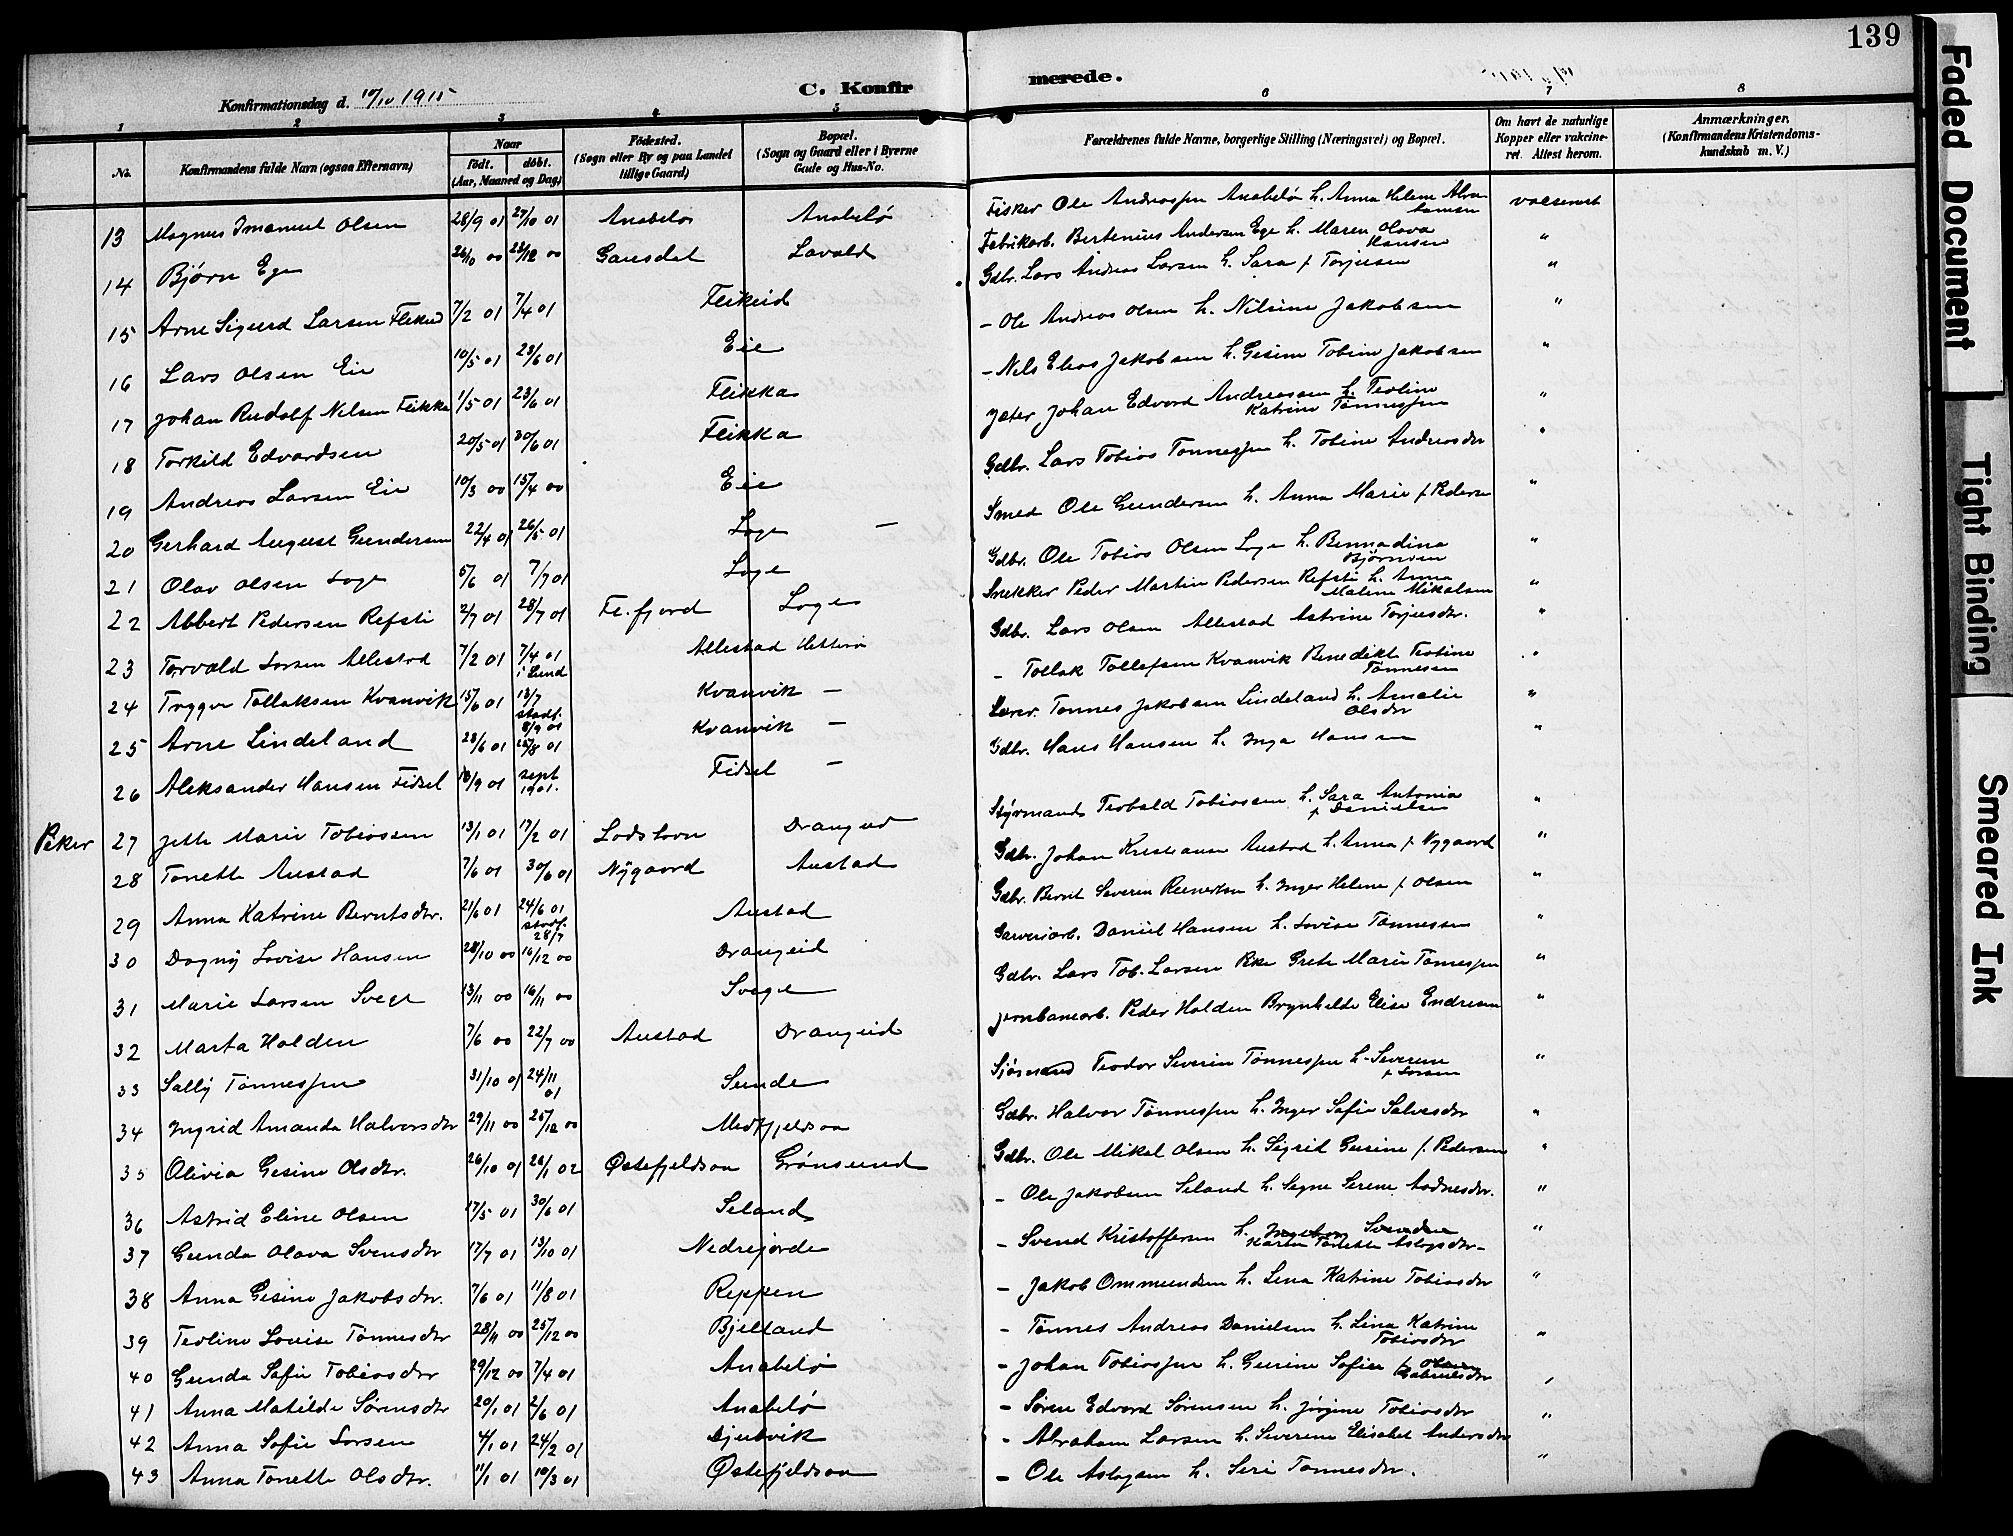 139
C. Konfirmerede.
Konfirmationsdag d. 10/10 1915
1 2 3 4 5 6 7 8
No.
Konfirmandens fulde Navn (ogsaa Efternavn)
Naar
født. døbt.
(Aar, Maaned og Dag)
Fødested.
(Sogn eller By og paa Landet
tillige Gaard)
Bopæl.
(Sogn og Gaard eller i Byerne
Gade og Hus-No.
Forældrenes fulde Navne, borgerlige Stilling (Næringsvei) og Bopæl.
Om havt de naturlige
Kopper eller vakcine-
ret. Attest herom.
Anmærkninger.
(Konfirmandens Kristendoms-
kundskab m. V.)
13 Magnus Imanuel Olsen 28/9 01 27/10 01 Anabelø Anabelø Fisker Ole Andreassen Anabelø h. Anna Helene Abra-
hamsen
14 Bjørn Ege 26/10 00 23/12 00 Gausdal Lavold Fabrikarb. Bertenius Andersen Ege h. Maren Olava
Hansen "
15 Arne Sigurd Larsen Flikeid 7/2 01 7/4 01 Flikeid Gdbr. Lars Andreas Larsen h. Sara f Torjusen "
16 Lars Olsen Eie 10/5 01 23/6 01 Eie - Ole Andreas Olsen h. Nilsine Jakobsen "
17 Johan Rudolf Nilsen Flikka 1/5 01 23/6 01 Flikka - Nils Elias Jakobsen h. Gesine Tobine Jakobsen "
18 Torkild Edvardsen 20/5 01 30/6 01 Flikka Johan Edvard Andreassen h. Teoline
Katrine Tønnessen "
19 Andreas Larsen Eie 10/3 00 15/4 00 Eie Gdbr. Lars Tobias Tønnessen h. Tobine Andreasdtr "
20 Gerhard August Gundersen 22/4 01 26/5 01 Loge — Smed Ole Gundersen h. Anna Marie f Pedersen "
21 Olav Olsen Loge 5/6 01 7/7 01 Loge Gdbr. Ole Tobias Olsen Loge h. Bennadina
Bjørnsen "
22 Abbert Pedersen Refsti 2/7 01 28/7 01 Fl.fjord Loge Snekker Peder Martin Pedersen Refsti h. Anna
Malene Mikalsen "
23 Torvald Larsen Allestad 7/2 01 7/4 01
i Lund Allestad Hetterø Gdbr. Lars Olsen Allestad Astrine Torjusdtr. "
24 Trygve Tollaksen Kvanvik 15/6 01 13/7
stadf.
8/9 01 Kvanvik — - Tollak Tollefsen Kvanvik Benedikte Teoline
Tønnesen "
25 Arne Lindeland 23/6 01 25/8 01 Kvanvik — Lærer. Tønnes Jakobsen Lindeland h. Amalie
Olsdtr "
26 Aleksander Hansen Fidsel 18/9 01 sept
1901. Fidsel — Gdbr. Hans Hansen h. Inga Hansen "
Piker 27 Jette Marie Tobiassen 13/1 01 17/2 01 Lodshavn Drangeid Styrmand Teobald Tobiassen h. Sara Antonia
f Danielsen "
28 Tonette Austad 7/6 01 30/6 01 Nygaard Austad Gdbr. Johan Kristiansen Austad h. Anna f Nygaard "
29 Anna Katrine Berntsdtr. 21/6 01 24/6 01
stadf.
28/7 Austad Gdbr. Bernt Severin Reinertsen h. Inger Helene f Olsen "
30 Dagny Lovise Hansen 28/10 00 16/12 00 Drangeid Garveriarb. Daniel Hansen h. Lovise Tønnessen "
31 Marie Larsen Svege 13/11 00 16/11 00 Svege Gdbr. Lars Tob. Larsen Eke Grete Marie Tønnessen "
32 Marta Holden 7/6 00 22/7 00 Austad Drangeid Jernbanearb. Peder Holden Brynhilde Elise Endresen "
33 Sally Tønnessen 31/10 01 24/11
01 Sunde Sjømand Teodor Severin Tønnessen h. Severine
f Larsen "
34 Ingrid Amanda Halvorsdtr 29/11 00 25/12 00 Midtfjeldsaa Gdbr. Halvor Tønnessen h. Inger Sofie Salvesdtr "
35 Olivia Gesine Olsdtr. 26/10 01 26/1 02 Østefjeldsaa Grønsund Gdbr. Ole Mikal Olsen h. Sigrid Gusine f. Pedersen "
36 Astrid Eline Olsen 17/5 01 30/6 01 Seland - Ole Jakobsen Seland h. Signe Serene Aadnesdtr. "
37 Gunda Olava Svensdtr 17/7 01 13/10 01 Nedrejorde - Svend Kristoffersen h.
Karen Tonette Aslagsdtr- "
38 Anna Gesine Jakobsdtr. 7/6 01 11/8 01 Reppen - Jakob Ommundsen h. Lena Katrine Tobiasdtr "
39 Teoline Lovise Tønnesdtr 28/11 00 25/12 00 Bjelland - Tønnes Andreas Danielsen h. Lina Katrine
Tobiasdtr "
40 Gunda Sofie Tobiasdtr 29/12 00 7/4 01 Anabelø - Johan Tobiassen h. Gusine Sofie f
Gabrielsdtr "
41 Anna Matilde Sørensdtr 20/1 01 2/6 01 Anabelø - Søren Edvard Sørensen h. Jørgine Tobiasdtr "
42 Anna Sofie Larsen 4/1 01 24/2 01 Djubvik - Abraham Larsen h. Severine Elisabet Andersdtr
43 Anna Tonette Olsdtr. 11/1 01 10/3 01 Østefjeldsaa - Ole Aslagsen h. Siri Tønnesdtr. "
Faded Document
Tight Binding
Smeared Ink